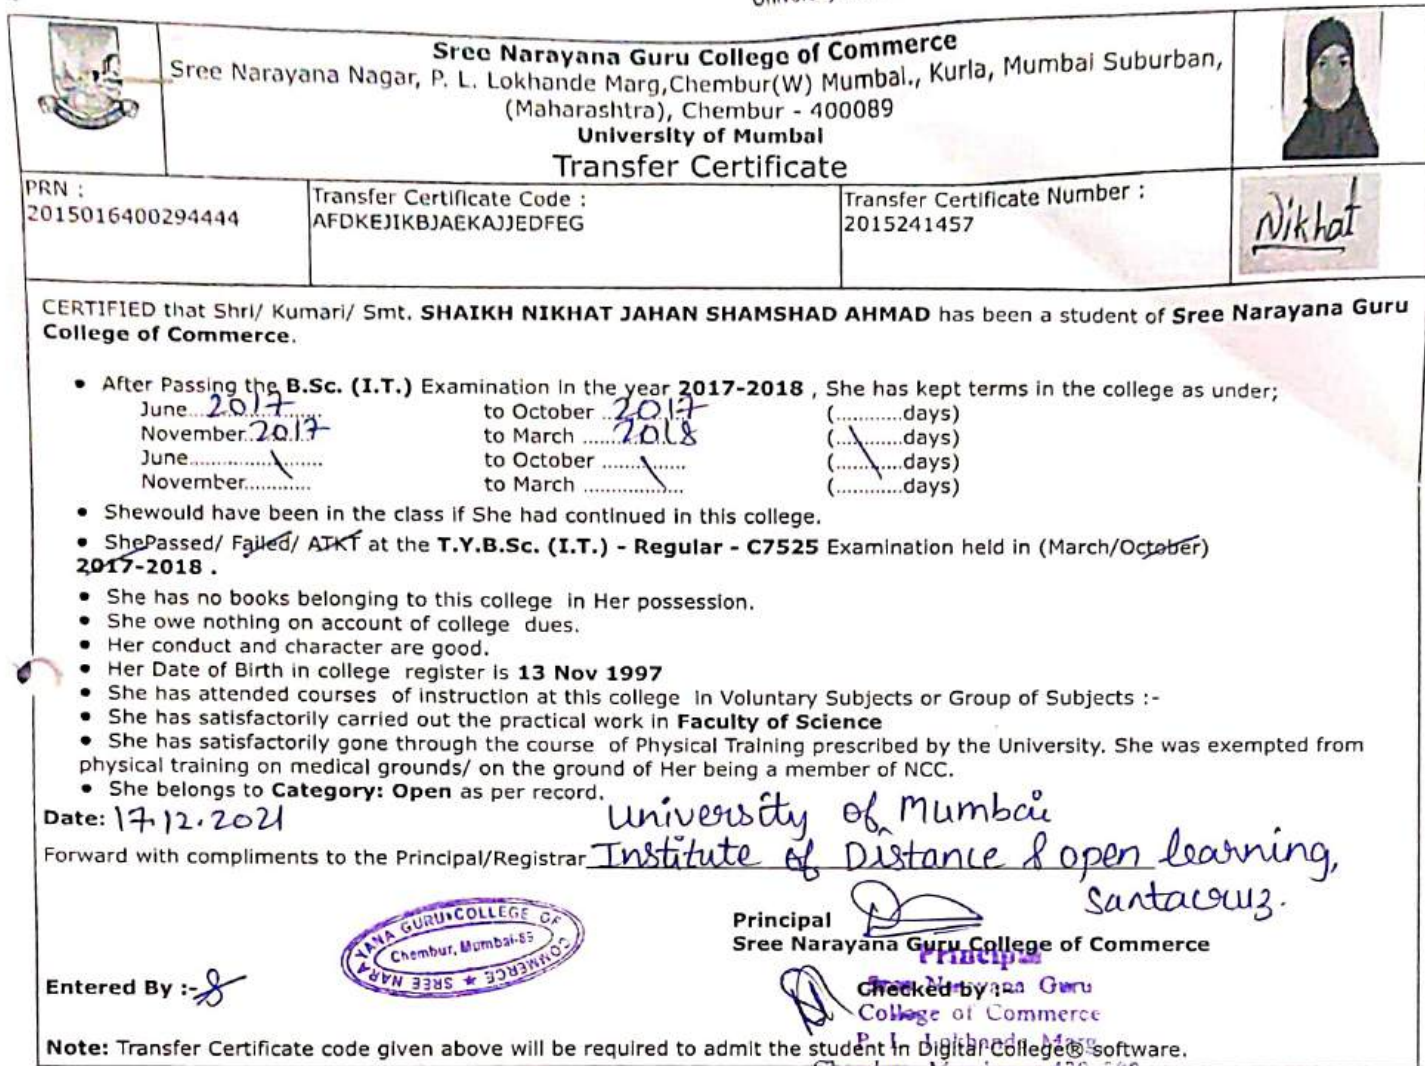 Sree Narayana Guru College of Commerce
Sree Narayana Nagar, P. L. Lokhande Marg,Chembur(W) Mumbai., Kurla, Mumbai Suburban,
(Maharashtra), Chembur - 400089
University of Mumbai
Transfer Certificate
PRN :
2015016400294444
Transfer Certificate Code :
AFDKEJIKBJAEKAJJEDFEG
Transfer Certificate Number :
2015241457
Nikhat
CERTIFIED that Shri/ Kumari/ Smt. SHAIKH NIKHAT JAHAN SHAMSHAD AHMAD has been a student of Sree Narayana Guru
College of Commerce.
• After Passing the B.Sc. (I.T.) Examination in the year 2017-2018 , She has kept terms in the college as under;
June 2017 to October 2017 (............days)
November 2017 to March 2018 (............days)
June........................ to October ............... (............days)
November............ to March .................. (............days)
• Shewould have been in the class if She had continued in this college.
• ShePassed/ Failed/ ATKT at the T.Y.B.Sc. (I.T.) - Regular - C7525 Examination held in (March/October)
2017-2018 .
• She has no books belonging to this college in Her possession.
• She owe nothing on account of college dues.
• Her conduct and character are good.
• Her Date of Birth in college register is 13 Nov 1997
• She has attended courses of instruction at this college in Voluntary Subjects or Group of Subjects :-
• She has satisfactorily carried out the practical work in Faculty of Science
• She has satisfactorily gone through the course of Physical Training prescribed by the University. She was exempted from
physical training on medical grounds/ on the ground of Her being a member of NCC.
• She belongs to Category: Open as per record.
Date: 17.12.2021 University of Mumbai
Forward with compliments to the Principal/Registrar Institute of Distance & open learning,
Santacruz.
Principal
Sree Narayana Guru College of Commerce
SREE NARAYANA GURU COLLEGE OF COMMERCE
Chembur, Mumbai-89
Principal
Entered By :-
Checked by :-
Narayana Guru
College of Commerce
P. L. Lokhande Marg
Note: Transfer Certificate code given above will be required to admit the student in Digital College® software.